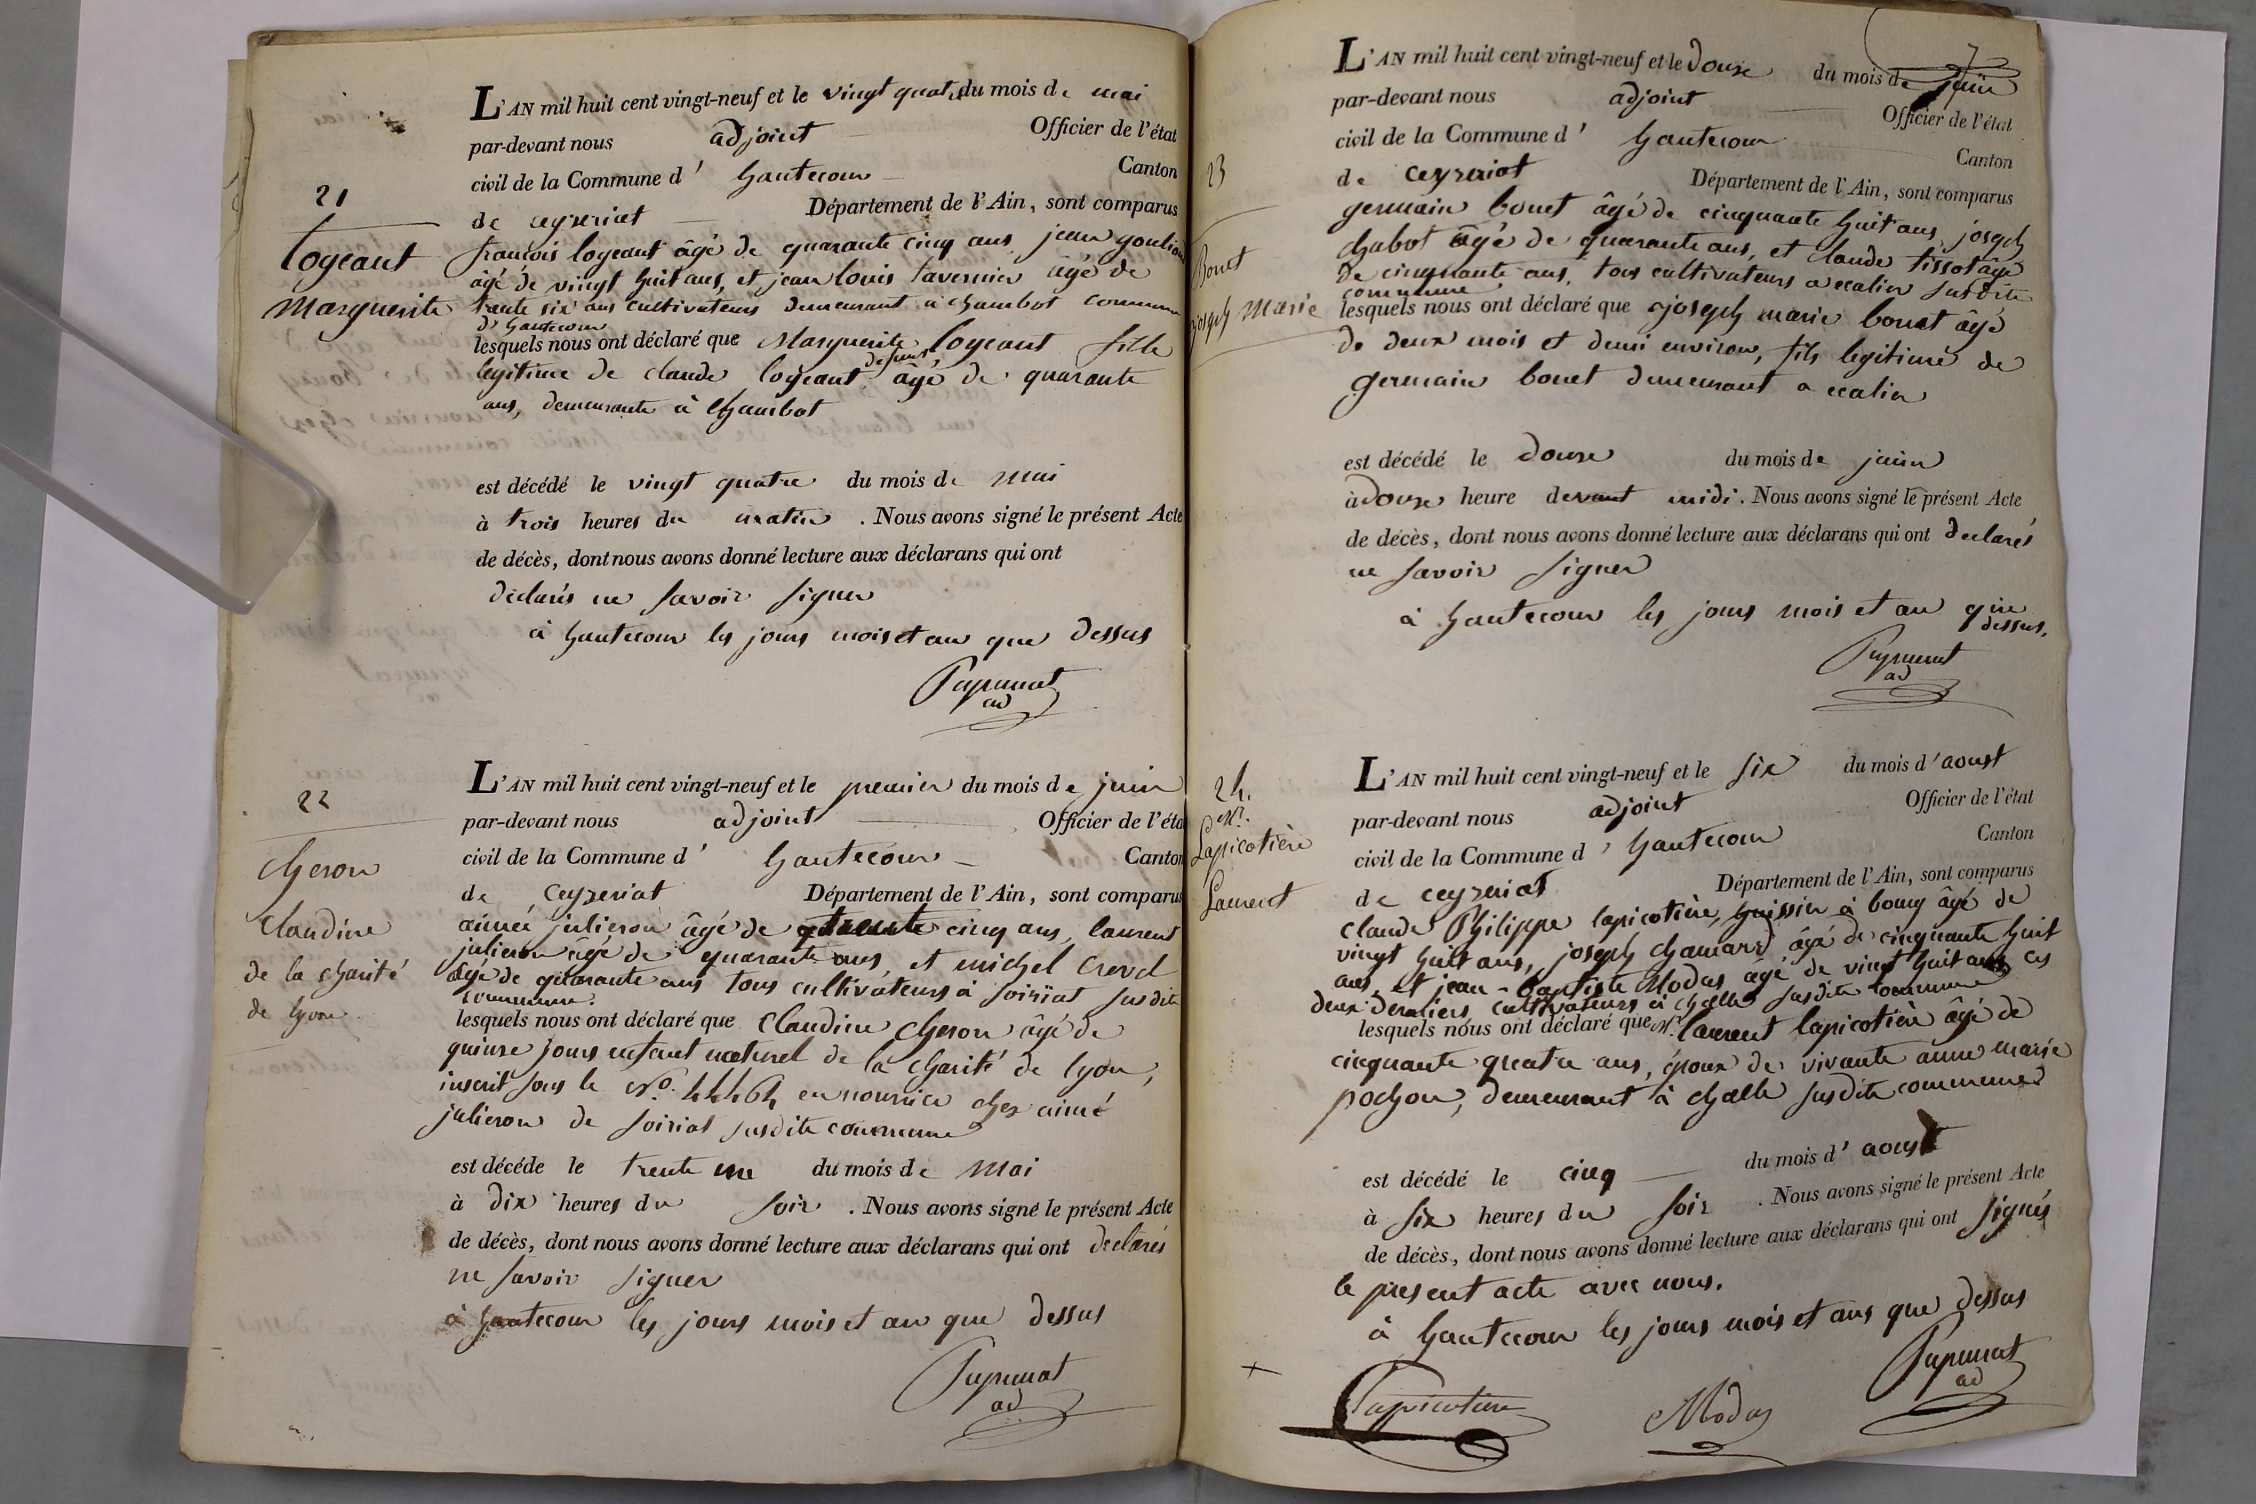 21
Logeant
Marguerite
L'AN mil huit cent vingt-neuf et le vingt quatre du mois de mai
par-devant nous adjoint Officier de l'état
civil de la Commune d' hautecour Canton
de ceyzeriat Département de l'Ain, sont comparus
françois logeant âgé de quarante cinq ans, jean
âgé de vingt huit ans, et jean louis tavernier âgé de
trente six ans cultivateurs demeurant à chambot commune
d'hautecour
lesquels nous ont déclaré que Marguerite logeant fille
legitime de claude logeant, defunt, âgé de quarante
ans, demeurante à chambot
est décédé le vingt quatre du mois de mai
à trois heures du matin . Nous avons signé le présent Acte
de décès, dont nous avons donné lecture aux déclarans qui ont
declarés ne savoir signer
à hautecour les jours mois et an que dessus
ad
22
Cheron
Claudine
de la charité
de lyon
L'AN mil huit cent vingt-neuf et le premier du mois de juin
par-devant nous adjoint Officier de l'éta
civil de la Commune d' hautecour Canton
de ceyzeriat Département de l'Ain, sont comparus
aimée julieron âgé de trente cinq ans, laurent
julieron âgé de quarante ans, et michel
âgé de quarante ans tous cultivateurs à soiriat susdite
commune.
lesquels nous ont déclaré que Claudine cheron âgé de
quinze jours enfant naturel de la charité de lyon,
inscrit sous le N° 44464 en nourrice chez aimé
julieron de soiriat susdite commune
est décédé le trente une du mois de mai
à dix heures du soir . Nous avons signé le présent Acte
de décès, dont nous avons donné lecture aux déclarans qui ont declarés
ne savoir signer
à hautecour les jours mois et an que dessus
ad
7
23
Bonet
joseph marie
L'AN mil huit cent vingt-neuf et le douze du mois de juin
par-devant nous adjoint Officier de l'état
civil de la Commune d' hautecour Canton
de ceyzeriat Département de l'Ain, sont comparus
germain bonet âgé de cinquante huit ans, joseph
chabot âgé de quarante ans, et claude tissot âgé
de cinquante ans, tous cultivateurs a susdite
commune
lesquels nous ont déclaré que joseph marie bonet âgé
de deux mois et demi environ, fils legitime de
germain bonet demeurant a
est décédé le douze du mois de juin
à douze heure devant midi . Nous avons signé le présent Acte
de décès, dont nous avons donné lecture aux déclarans qui ont declarés
ne savoir signer
à hautecour les jours mois et an que
dessus.
ad
24.
Mr.
Lapicotière
Laurent
L'AN mil huit cent vingt-neuf et le six du mois d'aoust
par-devant nous adjoint Officier de l'état
civil de la Commune d' hautecour Canton
de ceyzeriat Département de l'Ain, sont comparus
claude Philippe lapicotière, huissier à bourg âgé de
vingt huit ans, joseph chamard âgé de cinquante huit
ans, et jean-baptiste Modas âgé de vingt huit ans ces
deux derniers cultivateurs à challe susdite commune
lesquels nous ont déclaré que Mr. laurent lapicotière âgé de
cinquante quatre ans, époux de vivante anne marie
pochon, demeurant à challe susdite commune
est décédé le cinq du mois d'aoust
à six heures du soir . Nous avons signé le présent Acte
de décès, dont nous avons donné lecture aux déclarans qui ont signés
le present acte avec nous.
à hautecour les jours mois et ans que dessus
ad
Lapicotière Modas